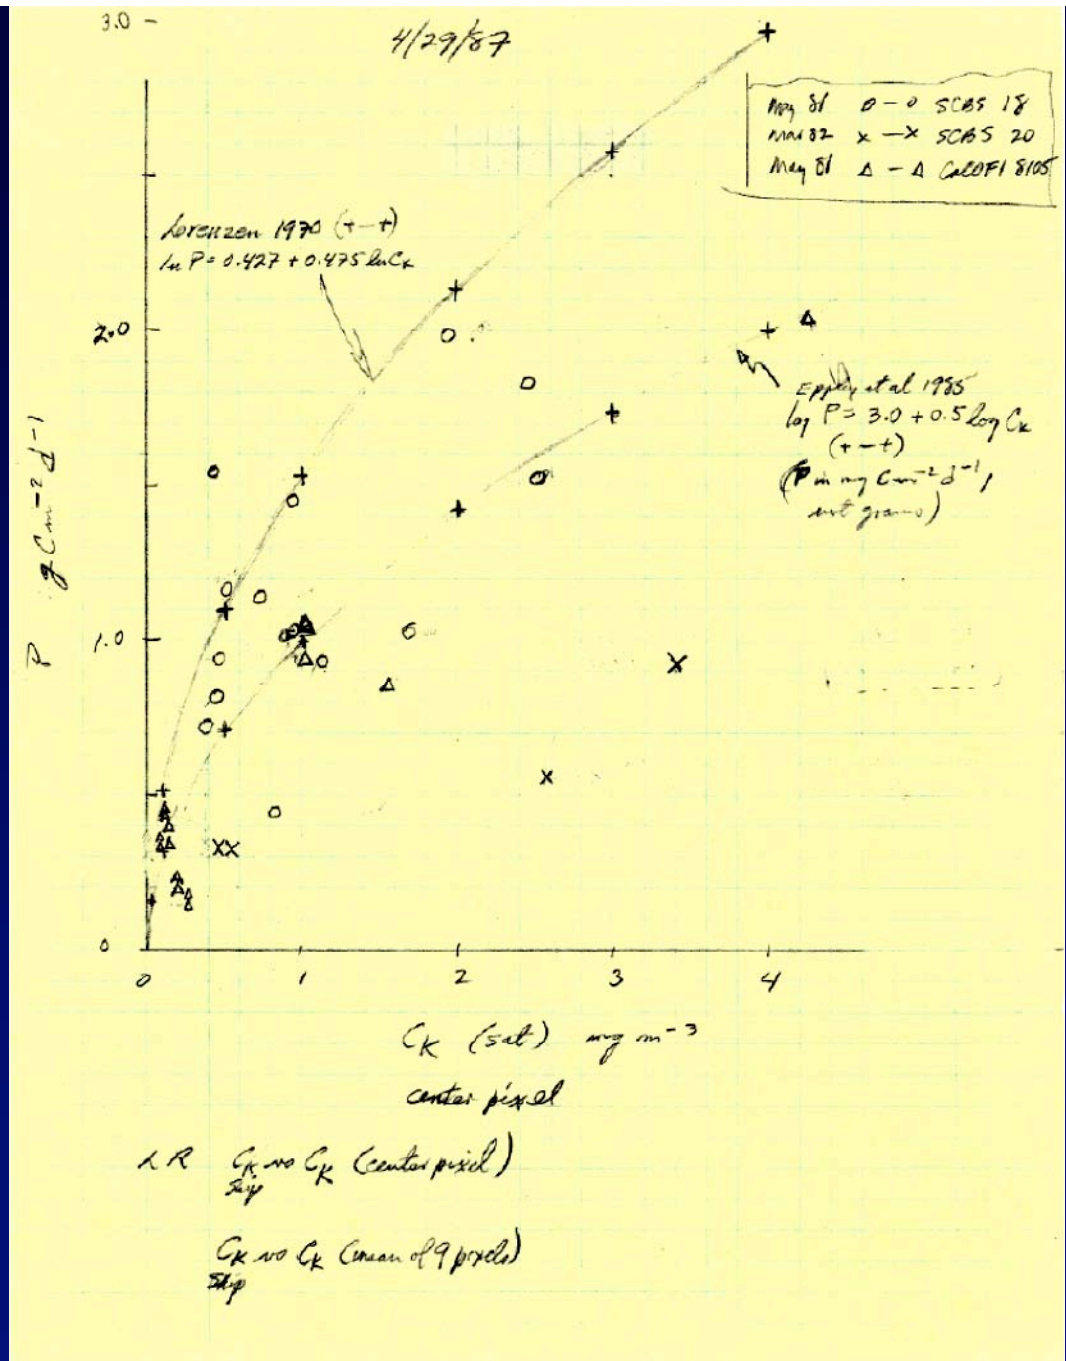 3.0
4/29/87
May 81 o - o SCBS 18
Mar 82 x - x SCBS 20
May 81 Δ - Δ CalCOFI 8105
Lorenzen 1970 (+-+)
ln P = 0.427 + 0.475 ln CK
2.0
Eppley et al 1985
log P = 3.0 + 0.5 log CK
(+-+)
(P in mg C m-2 d-1,
not grams)
P gC m-2 d-1
1.0
0
0 1 2 3 4
CK (sat) mg m-3
center pixel
LR CK vs CK (center pixel)
Ship
CK vs CK (mean of 9 pixels)
Ship